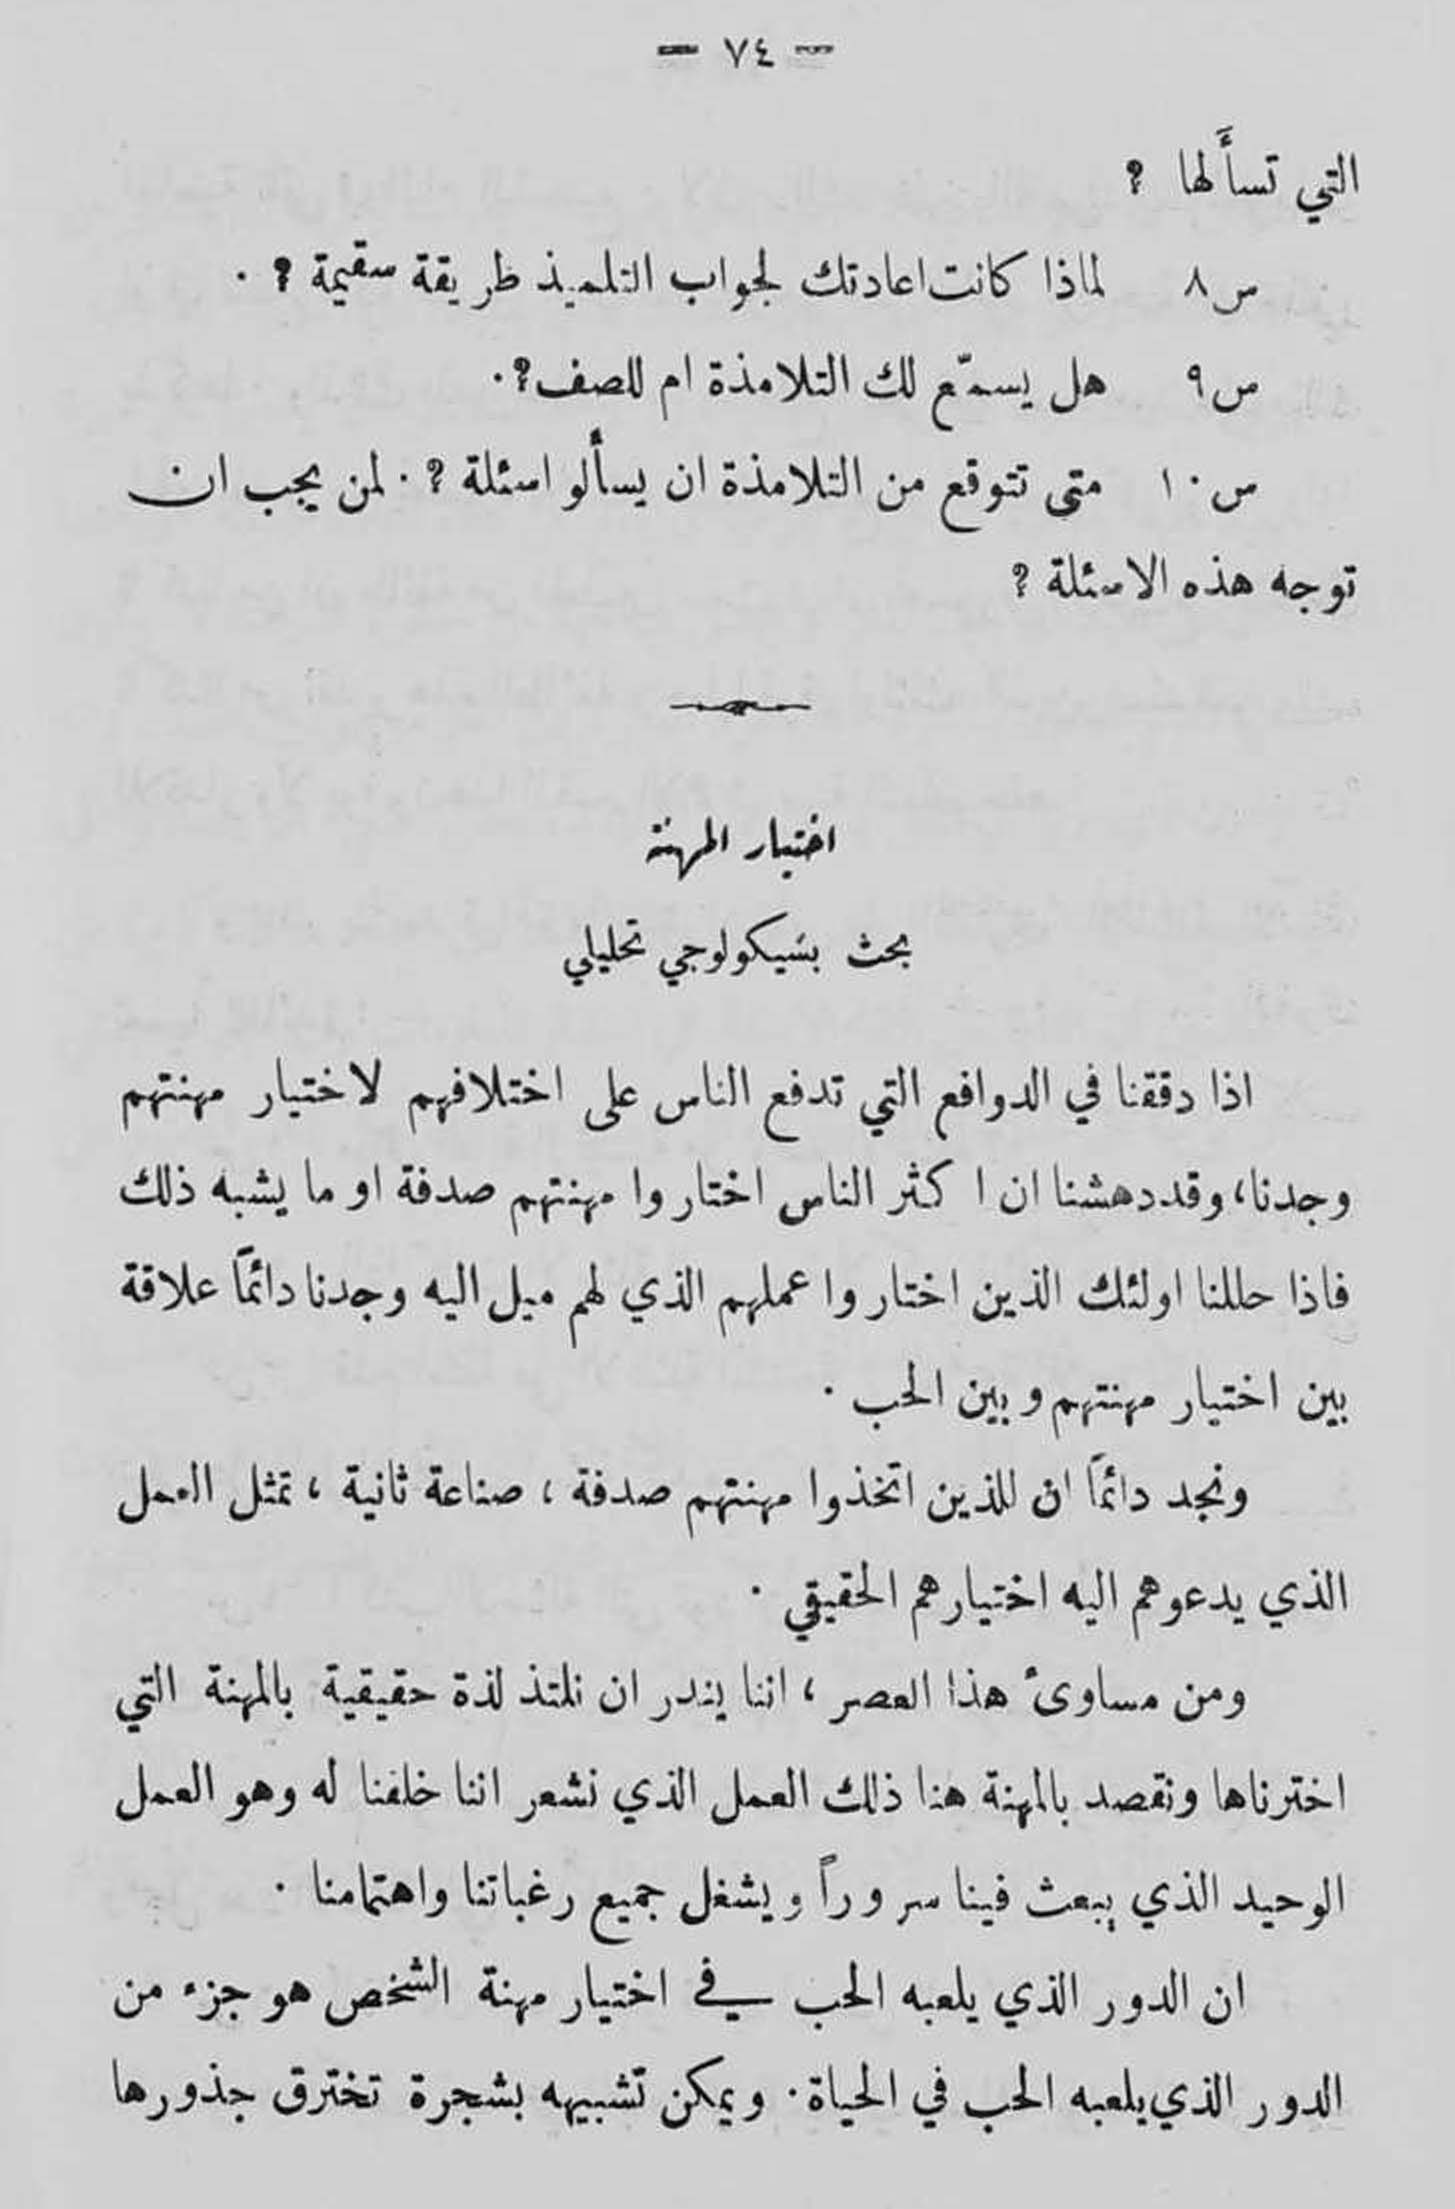 — ٧٤ —
التي تسأَلها ؟
س ٨ لماذا كانت اعادتك لجواب التلميذ طريقة سقيمة ؟ .
س ٩ هل يسمّع لك التلامذة ام للصف؟.
س ١٠ متى تتوقع من التلامذة ان يسألو اسئلة ؟ . لمن يجب ان
توجه هذه الاسئلة ؟
اختيار المهنة
بحث بسيكولوجي تحليلي
اذا دققنا في الدوافع التي تدفع الناس على اختلافهم لاختيار مهنتهم
وجدنا، وقد دهشنا ان اكثر الناس اختاروا مهنتهم صدفة او ما يشبه ذلك
فاذا حللنا اولئك الذين اختاروا عملهم الذي لهم ميل اليه وجدنا دائماً علاقة
بين اختيار مهنتهم وبين الحب .
ونجد دائماً ان للذين اتخذوا مهنتهم صدفة ، صناعة ثانية ، تمثل العمل
الذي يدعوهم اليه اختيارهم الحقيقي .
ومن مساوئ هذا العصر ، اننا يندر ان نلتذ لذة حقيقية بالمهنة التي
اخترناها ونقصد بالمهنة هنا ذلك العمل الذي نشعر اننا خلقنا له وهو العمل
الوحيد الذي يبعث فينا سروراً ويشغل جميع رغباتنا واهتمامنا .
ان الدور الذي يلعبه الحب في اختيار مهنة الشخص هو جزء من
الدور الذي يلعبه الحب في الحياة . ويمكن تشبيهه بشجرة تخترق جذورها